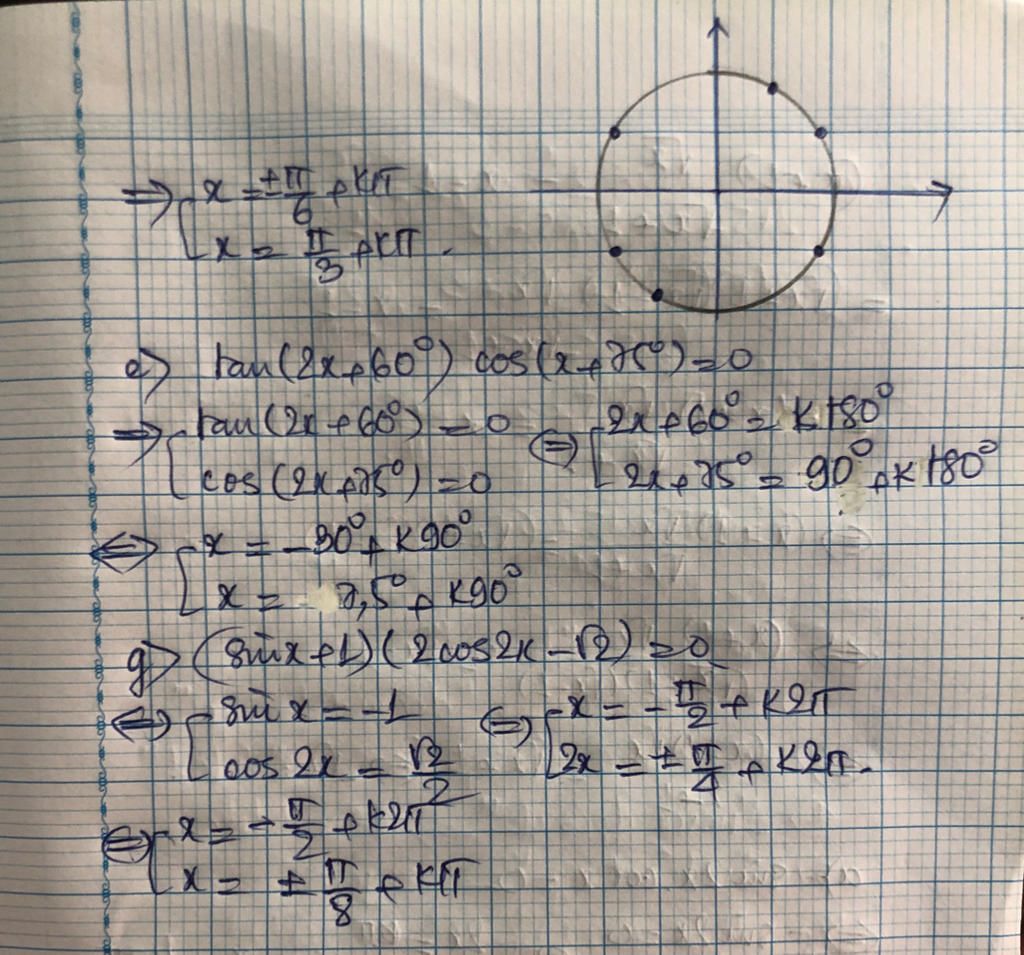 ⇒ [ x = ±π/6 + kπ
x = π/3 + kπ.
e) tan(2x+60°) cos(x+75°) = 0
⇒ [ tan(2x+60°) = 0 ⇔ [ 2x+60° = k180°
cos(2x+75°) = 0 2x+75° = 90° + k180°
⇔ [ x = -30° + k90°
x = 7,5° + k90°
g) (sin x + 1)(2cos2x - √2) = 0
⇔ [ sin x = -1 ⇔ [ x = -π/2 + k2π
cos 2x = √2/2 2x = ±π/4 + k2π.
⇔ [ x = -π/2 + k2π
x = ±π/8 + kπ